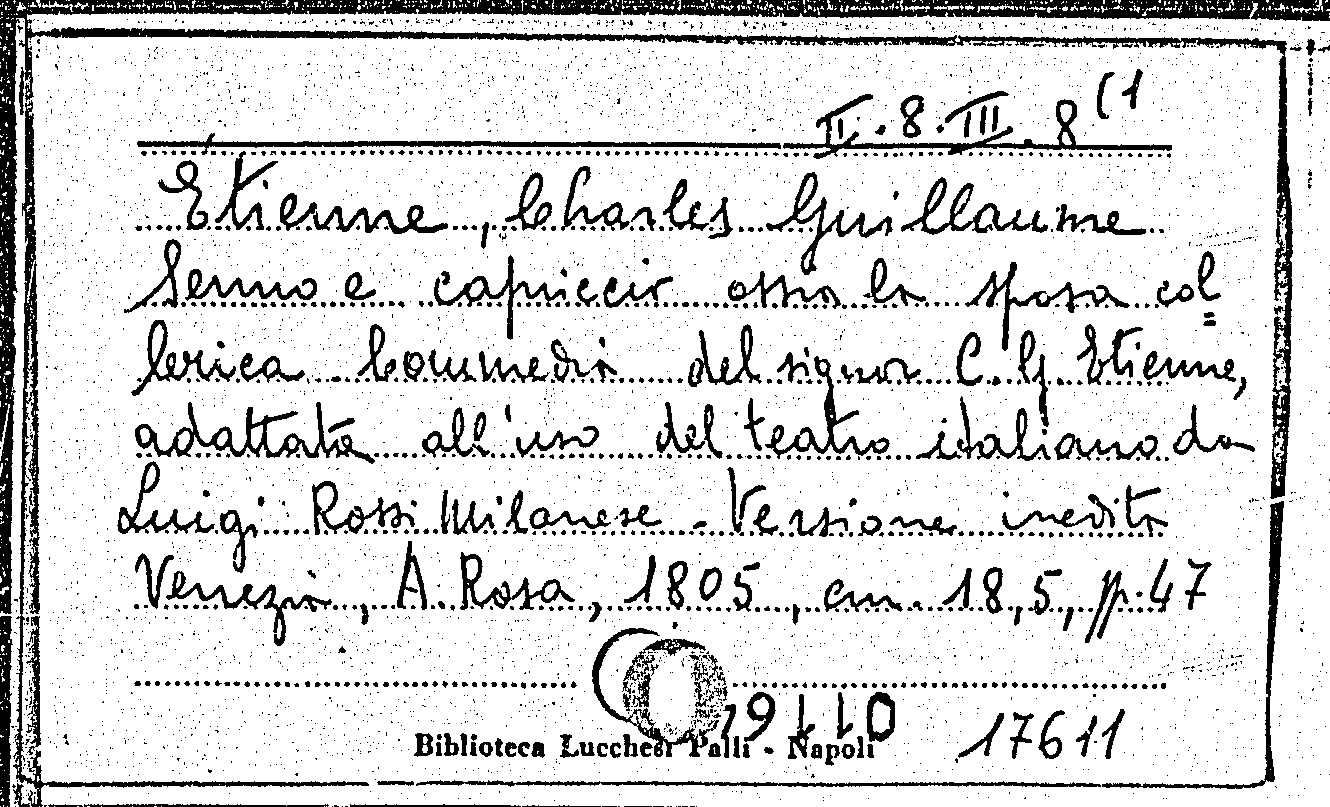 II.8.III.8(1
Étienne, Charles Guillaume
Senno e capriccio ossia la sposa col=
lerica. Commedia del signor C. G. Etienne,
adattata all'uso del teatro italiano da
Luigi Rossi Milanese - Versione inedita
Venezia, A. Rosa, 1805, cm. 18,5, pp. 47
17611
Biblioteca Lucchesi Palli - Napoli